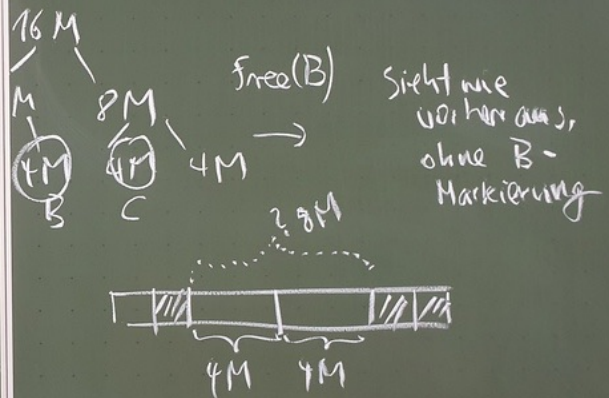 16 M
M 8M
4M 4M 4M
B C
free(B)
Sieht wie
vorher aus,
ohne B-
Markierung
? 8M
4M 4M